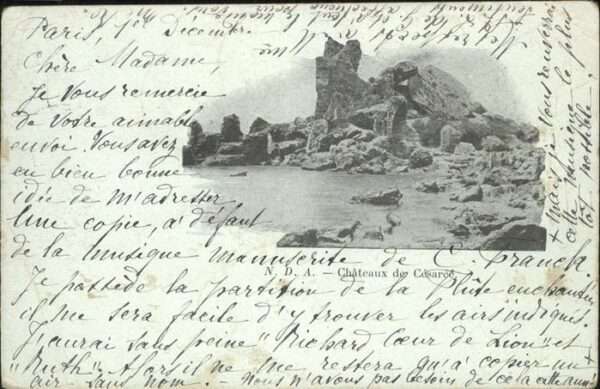 Paris, 1er Décembre.
Chère Madame,
Je vous remercie
de votre aimable
envoi. Vous avez
eu bien bonne
idée de m'adresser
une copie, à défaut
de la musique manuscrite de C. Franck.
N. D. A. — Châteaux de Césarée
Je possède la partition de la Flûte enchantée,
il me sera facile d'y trouver les airs indiqués.
J'aurai sans peine "Richard Cœur de Lion" et
"Ruth". Alors il ne me restera qu'à copier un
air sans nom. — Nous n'avons pas besoin de
+ mais je vous renverrai
cette musique le plus
tôt possible.